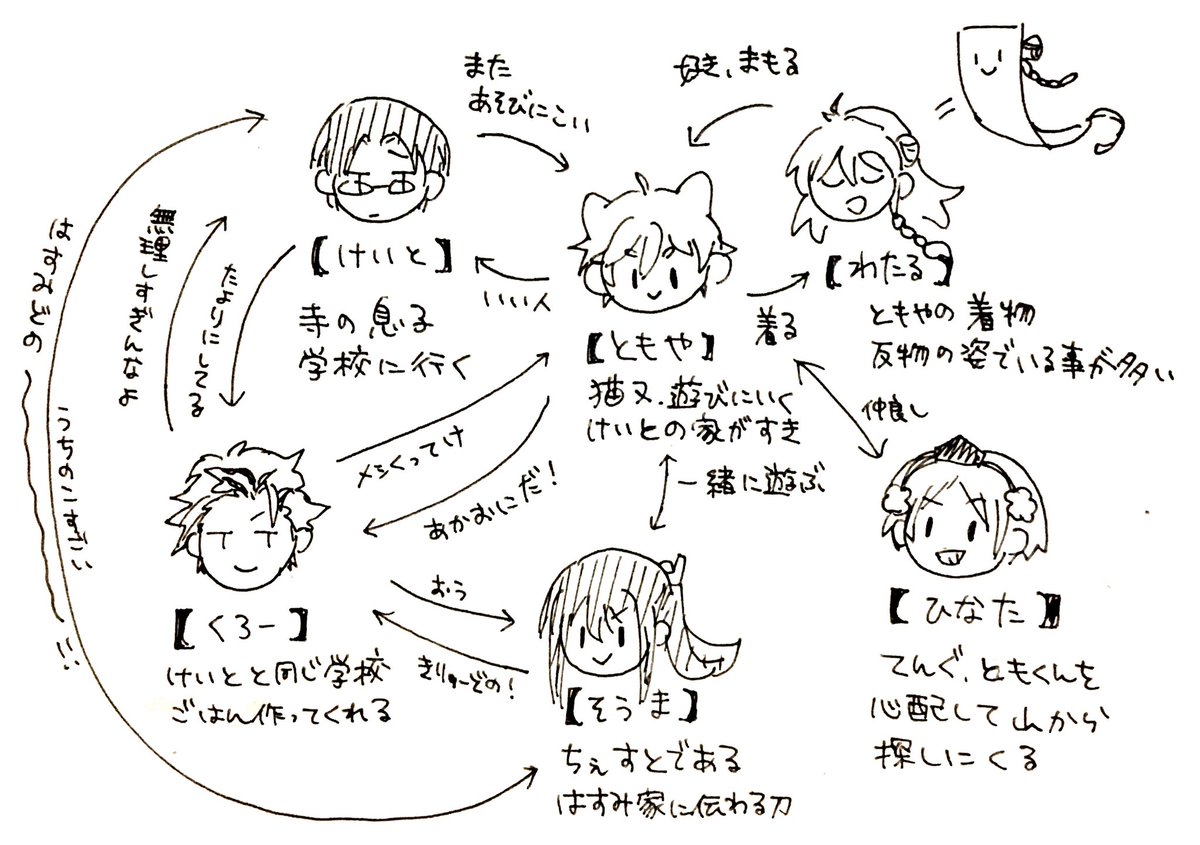 また
あそびにこい
好き、まもる
【けいと】
寺の息子
学校に行く
いい人
【ともや】
猫又、遊びにいく
けいとの家がすき
着る
【わたる】
ともやの着物
反物の姿でいる事が多い
仲良し
一緒に遊ぶ
無理しすぎんなよ
たよりにしてる
はすみどの
!!
うちのこすごい
メシくってけ
あかおにだ!
【くろー】
けいとと同じ学校
ごはん作ってくれる
おう
きりゅーどの!
【そうま】
ちぇすとである
はすみ家に伝わる刀
【ひなた】
てんぐ、ともくんを
心配して山から
探しにくる